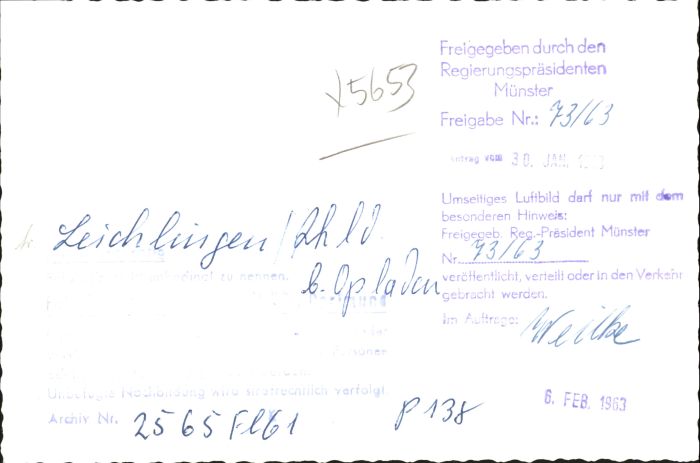 Freigegeben durch den
Regierungspräsidenten
Münster
Freigabe Nr.: 73/63
Antrag vom 30. JAN.
Umseitiges Luftbild darf nur mit dem
besonderen Hinweis:
Freigegeb. Reg.-Präsident Münster
Nr. 73/63
veröffentlicht, verteilt oder in den Verkehr
gebracht werden.
Im Auftrage:
6. FEB. 1963
5653
Leichlingen / Rhld.
b. Opladen
zu nennen.
Dortmund
Unbefugte Nachbildung wird strafrechtlich verfolgt.
Archiv Nr. 2565 Fl 61
P 138